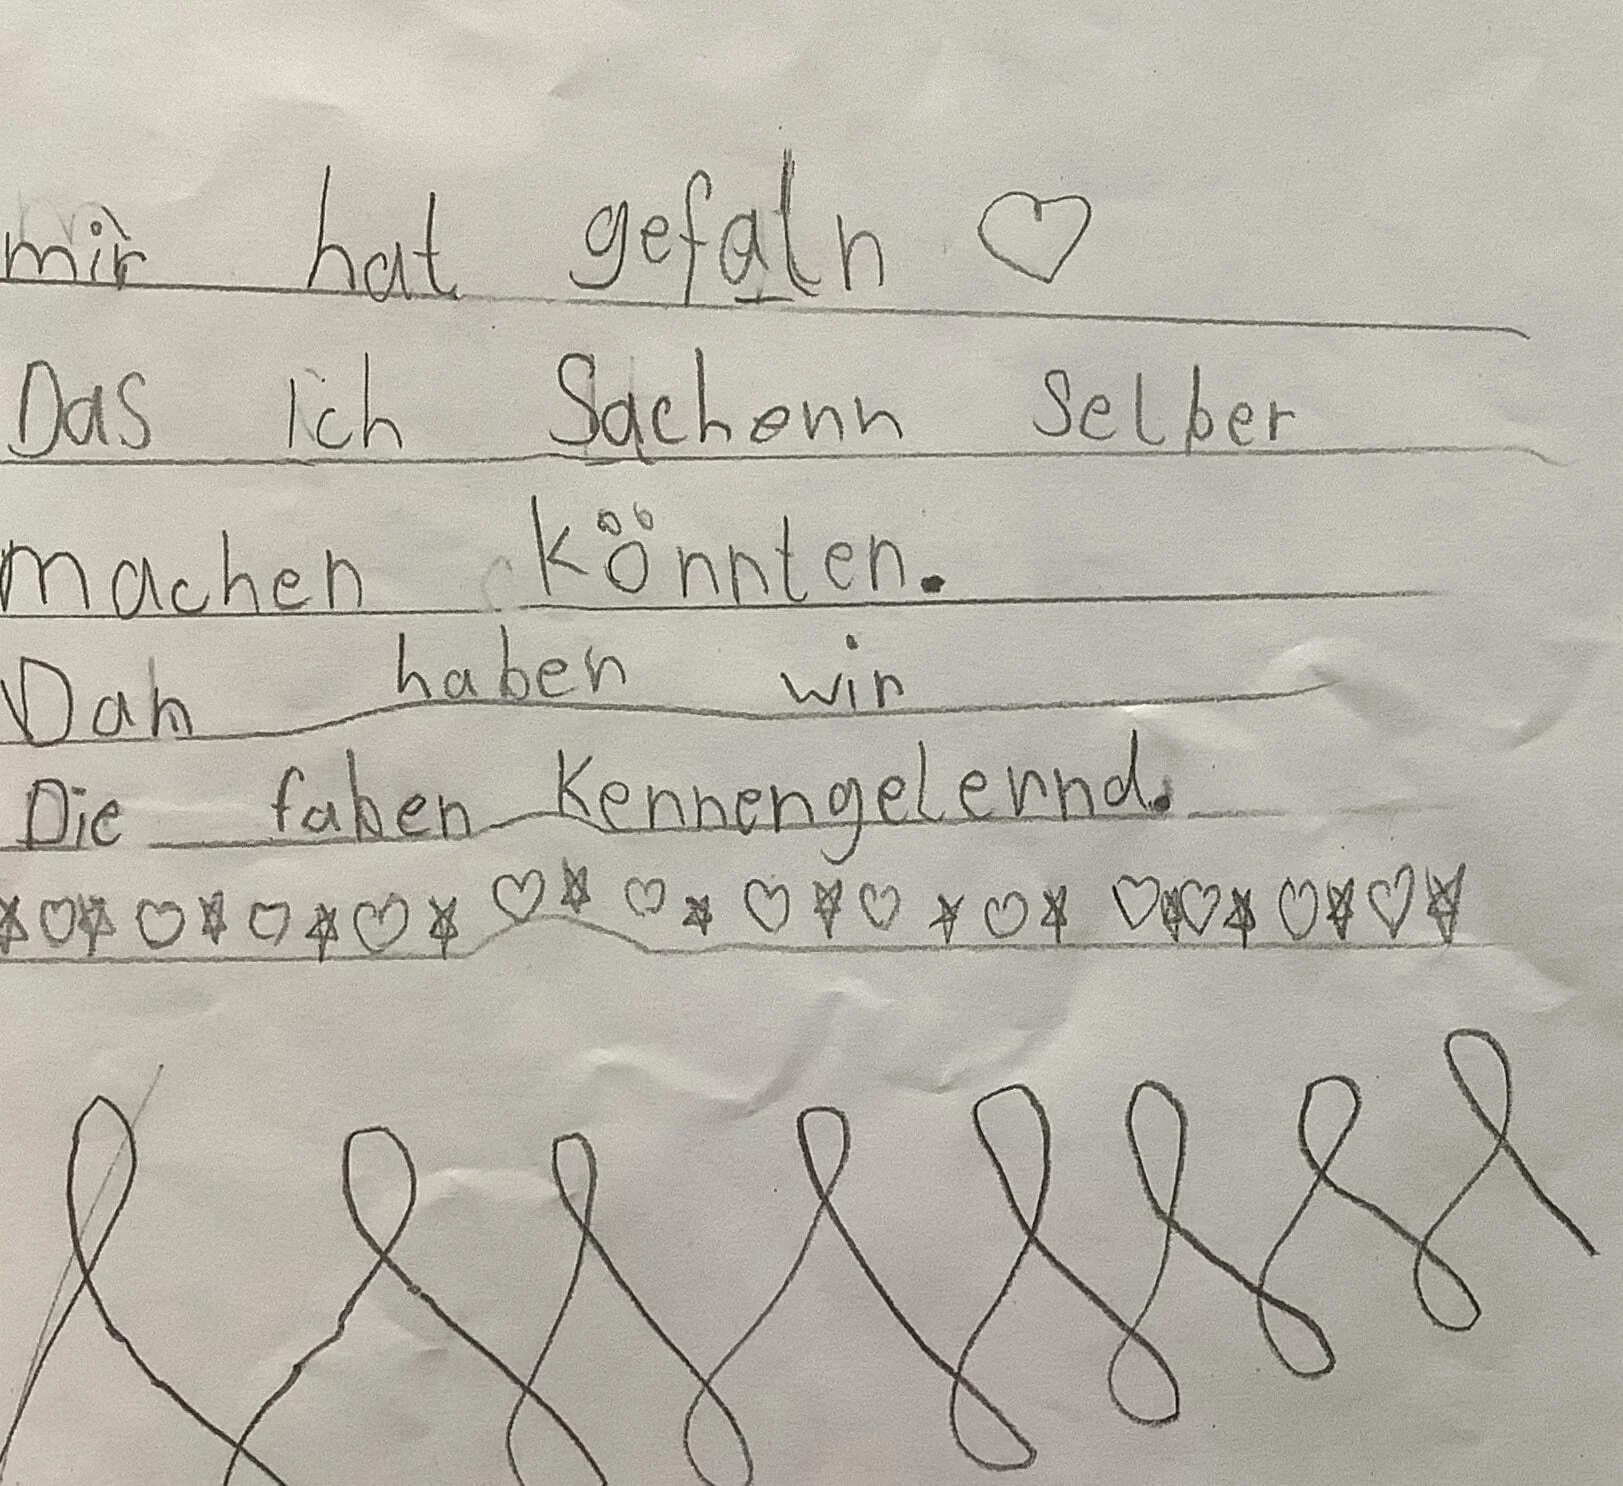 mir hat gefaln
Das ich Sachenn selber
machen könnten.
Dan haben wir
Die faben kennengelernd.